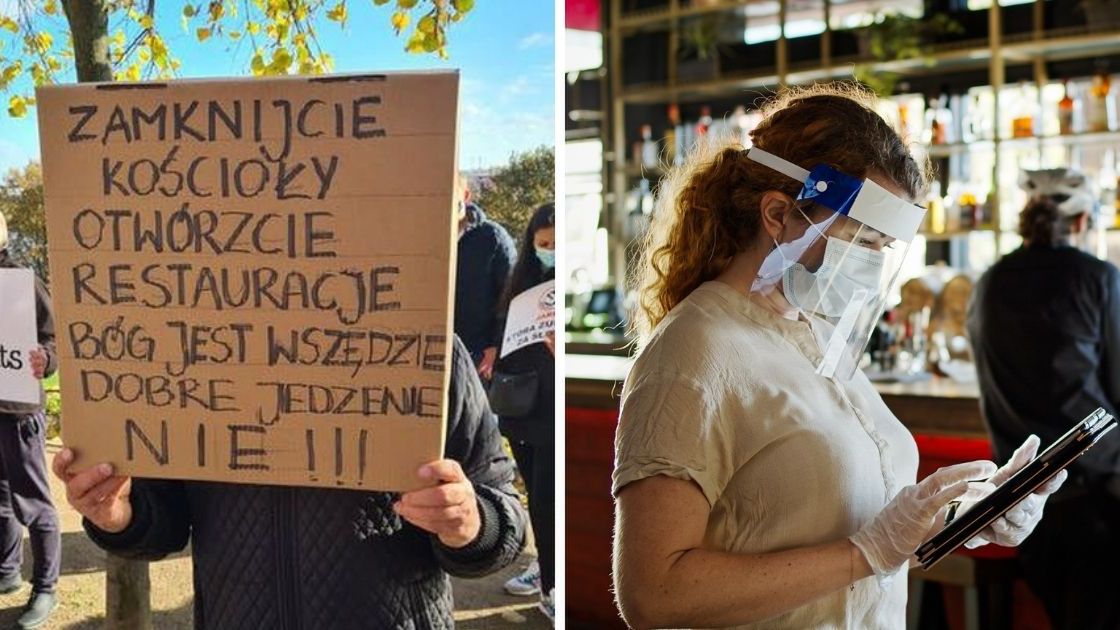 ZAMKNIJCIE
KOŚCIOŁY
OTWÓRZCIE
RESTAURACJE
BÓG JEST WSZĘDZIE
DOBRE JEDZENIE
NIE !!!
ts